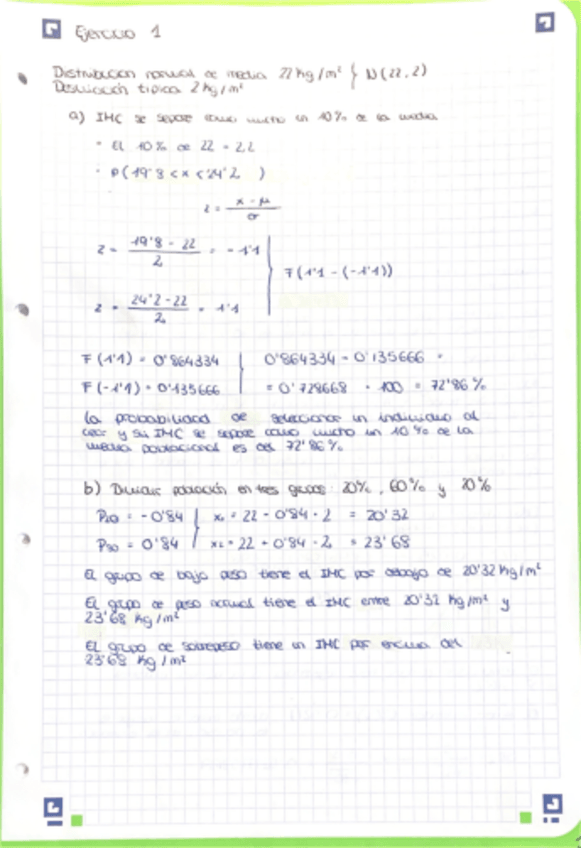 Ejercicio 1
Distribución normal de media 22 kg/m² } N(22,2)
Desviación típica 2 kg/m²
a) IMC se separe como mucho un 10% de la media
· El 10% de 22 = 2,2
· P(19'8 < x < 24'2 )
z = x - μ / σ
z = 19'8 - 22 / 2 = - 1'1
F(1'1 - (-1'1))
z = 24'2 - 22 / 2 = 1'1
F(1'1) = 0'864334 0'864334 - 0'135666 =
F(-1'1) = 0'135666 = 0'728668 · 100 = 72'86%
La probabilidad de seleccionar un individuo al
azar y su IMC se separe como mucho un 10% de la
media poblacional es del 72'86%
b) Dividir población en tres grupos: 20%, 60% y 20%
P20 = -0'84 x1 = 22 - 0'84 · 2 = 20'32
P80 = 0'84 x2 = 22 + 0'84 · 2 = 23'68
El grupo de bajo peso tiene el IMC por debajo de 20'32 kg/m²
El grupo de peso normal tiene el IMC entre 20'32 kg/m² y
23'68 kg/m²
El grupo de sobrepeso tiene un IMC por encima del
23'68 kg/m²